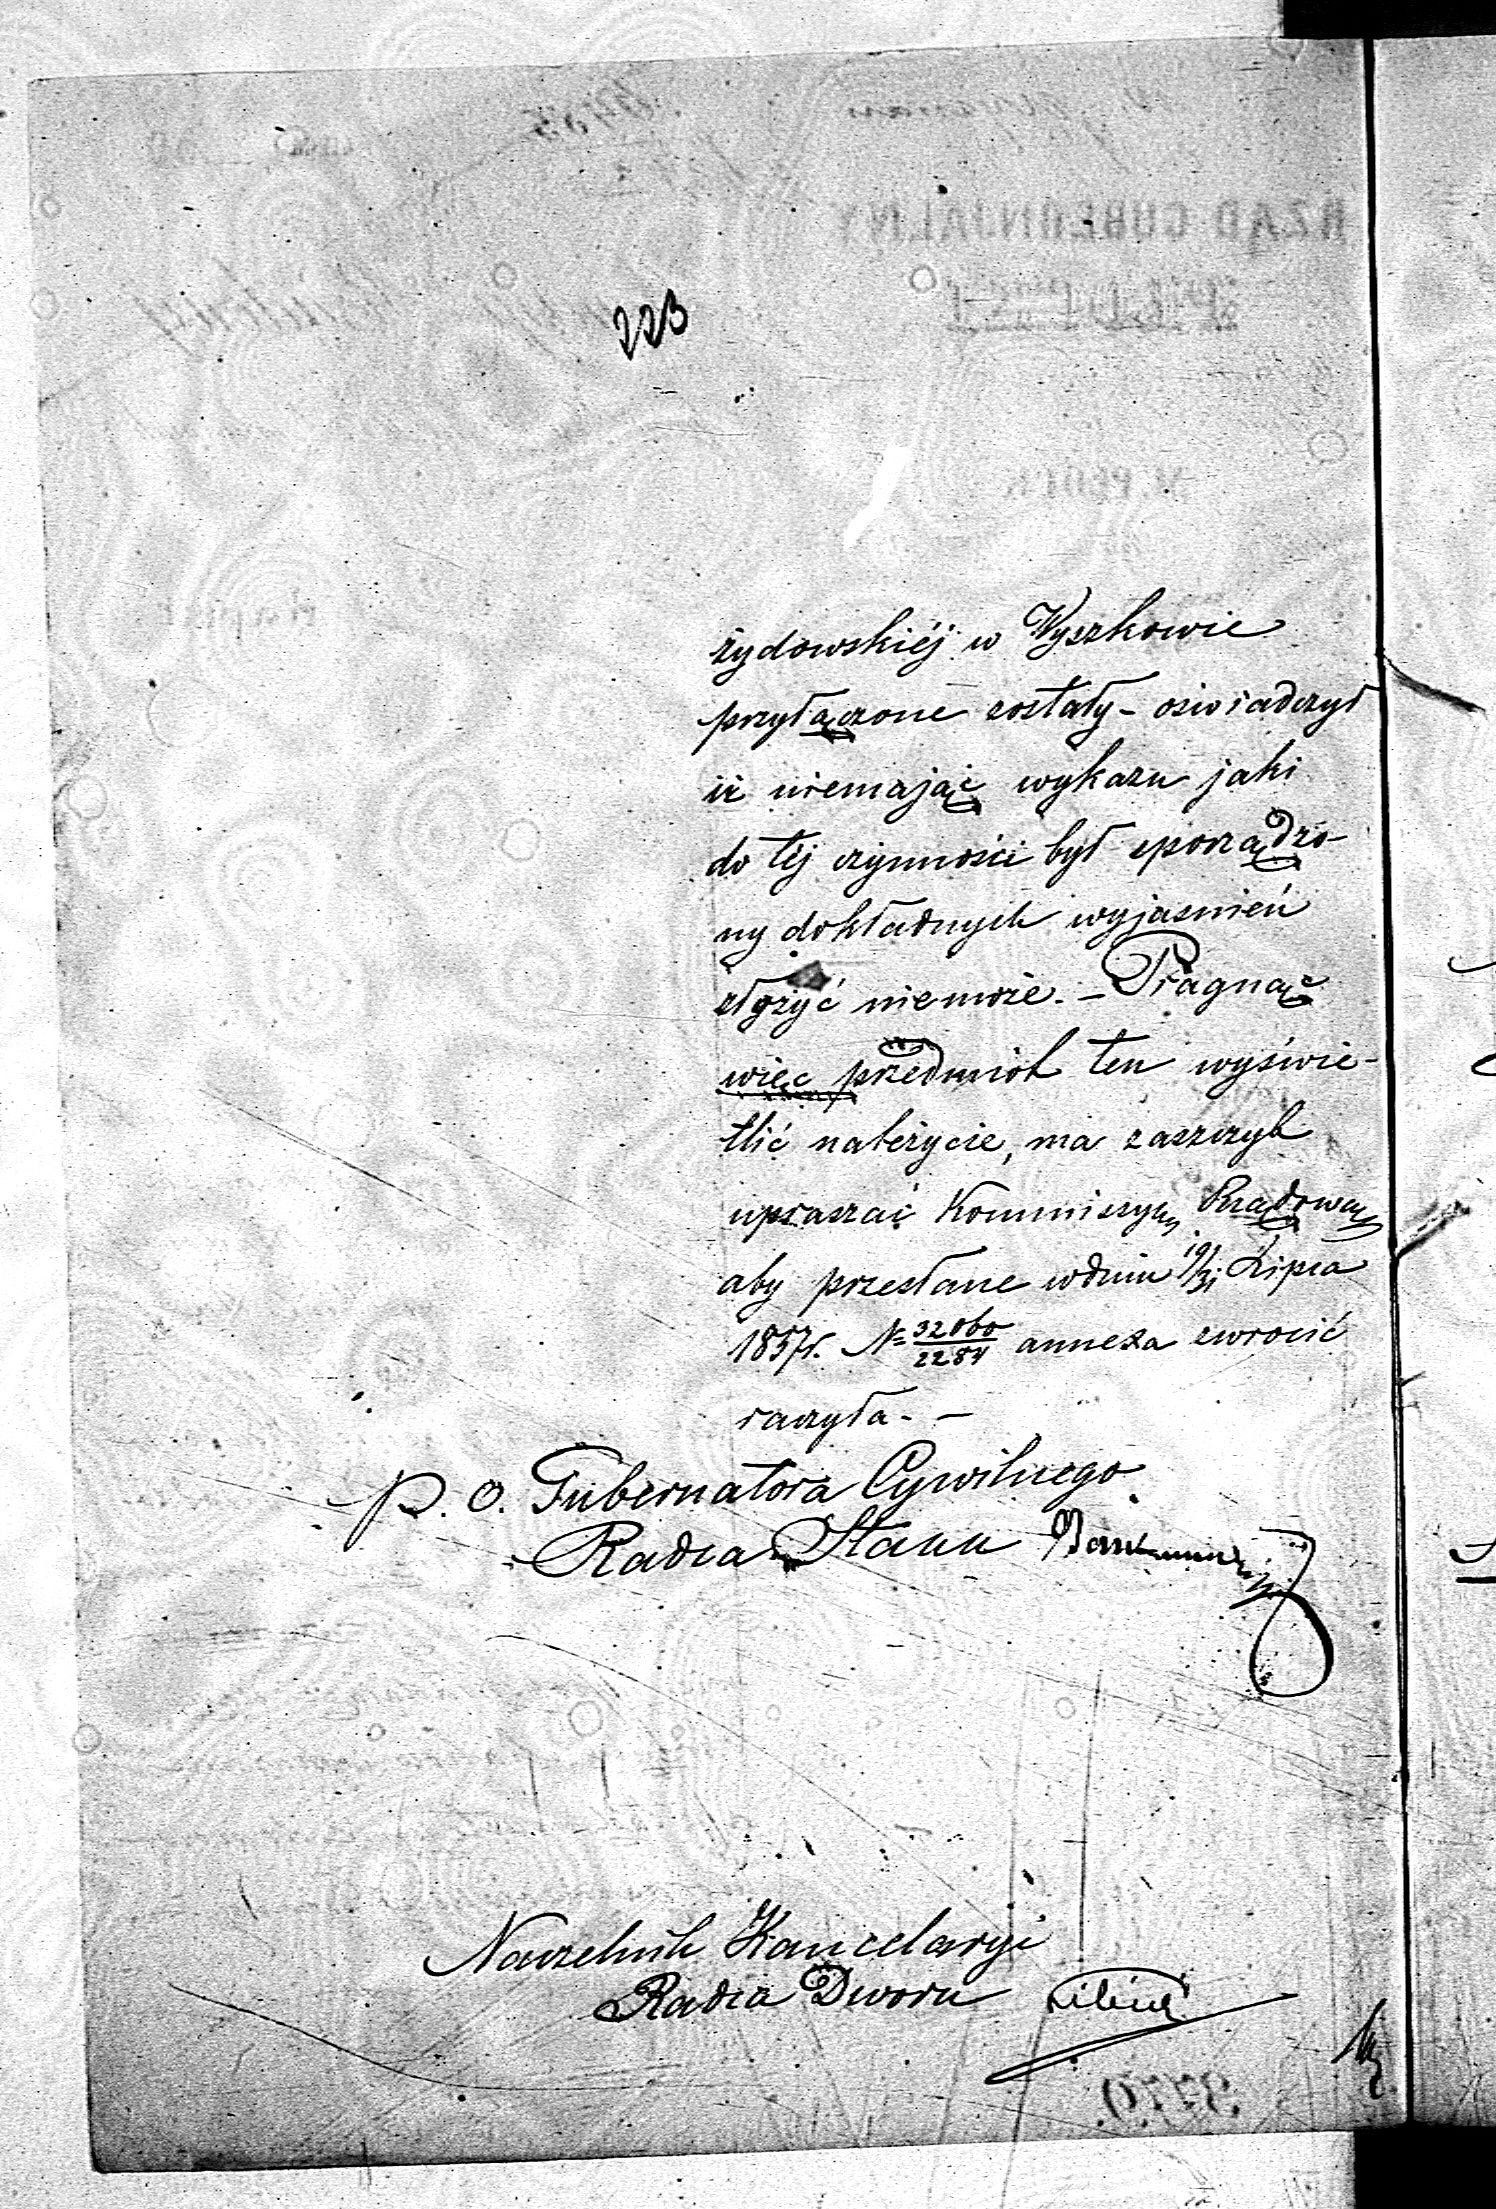 223
żydowskiéj w Wyszkowie
przyłączone zostały - oświadczył
iż niemając wykazu jaki
do téj czynności był sporządzo-
ny dokładnych wyjaśnień
złożyć niemoże. - Pragnąc
więc przedmiot ten wyświe-
tlić należycie, ma zaszczyt
upraszać Kommissyą Rządową
aby przesłane w dniu 19/31 Lipca
1857r. № 32060/2284 annexa zwrócić
raczyła. -
P. O. Gubernatora Cywilnego
Radca Stanu
Naczelnik Kancelaryi
Radca Dworu